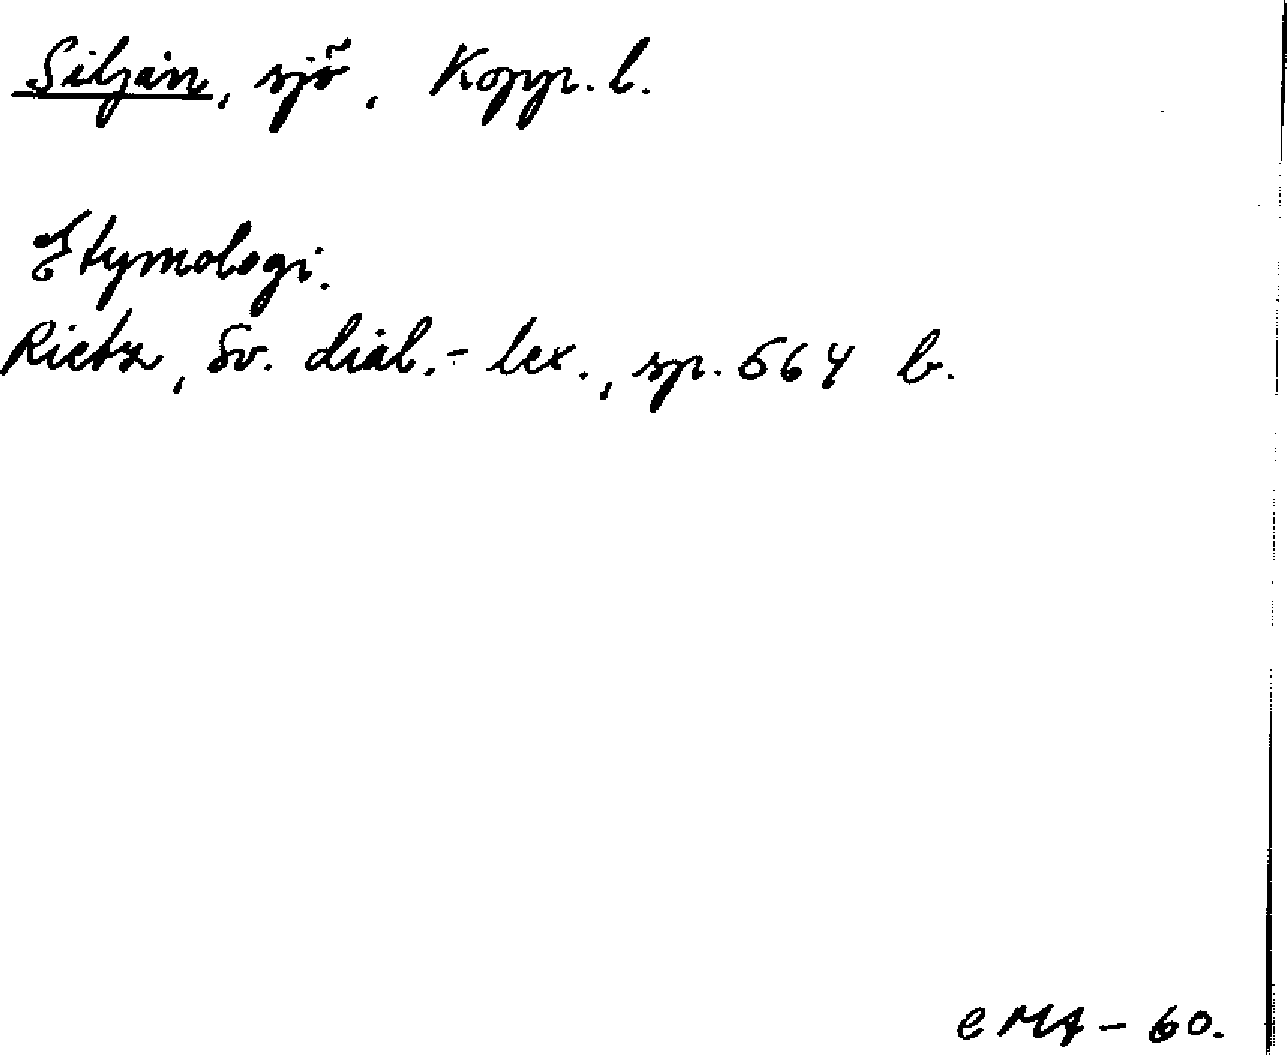 Siljan, sjö, Kopp. l.
Etymologi.
Rietz, Sv. dial.-lex., sp. 564 b.
e MA - 60.